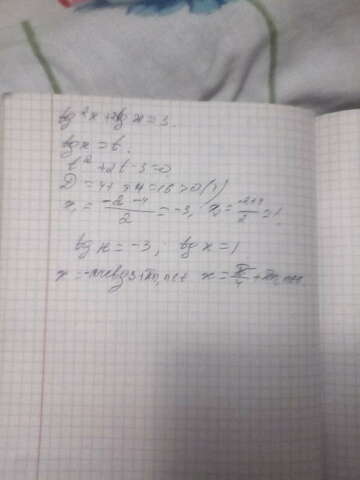 tg²x+2tg x=3.
tgx=t.
t²+2t-3=0
D=4+
x₁=\frac{-2-4}{2}=-3; x₂=\frac{-2+4}{2}=1.
tg x=-3; tg x=1
x=-arctg3+πn, n∈Z x=\frac{π}{4}+πn, n∈Z.